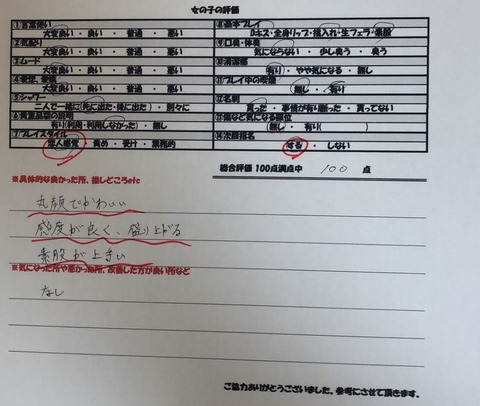 女の子の評価
①言葉使い
大変良い・良い・普通・悪い
②気配り
大変良い・良い・普通・悪い
③ムード
大変良い・良い・普通・悪い
大変良い・良い・普通・悪い
⑤シャワー
二人で一緒に(先に出た・後に出た)・別々に
⑥貴重品袋の説明
有り(利用・利用しなかった)・無し
⑦プレイスタイル
恋人感覚・責め・受け・業務的
⑧基本プレイ
Dキス・全身リップ・指入れ・生フェラ・素股
⑨口臭・体臭
気にならない・少し臭う・臭う
⑩清潔感
有り・やや気になる・無し
⑪プレイ中の喫煙
無し・有り
⑫名刺
貰った・事情が有り断った・貰ってない
無し・有り( )
⑭次回指名
する・しない
総合評価 100点満点中 100 点
※具体的な良かった所、推しどころetc
丸顔でかわいい
感度が良く、盛り上がる
素股が上手い
※気になった所や悪かった所、改善した方が良い所など
なし
ご協力ありがとうございました。参考にさせて頂きます。